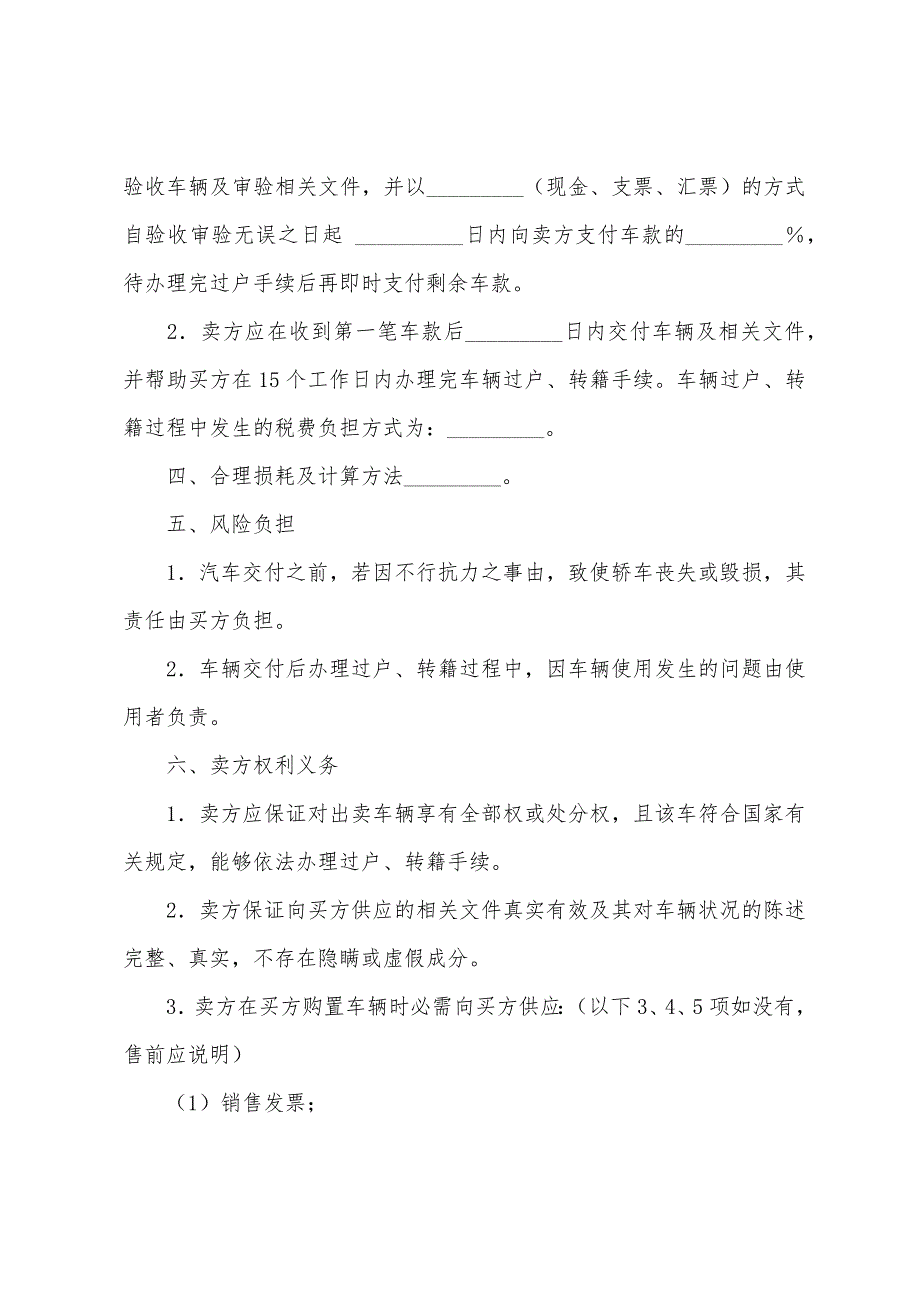 验收车辆及审验相关文件，并以_________（现金、支票、汇票）的方式
自验收审验无误之日起 __________日内向卖方支付车款的_________%，
待办理完过户手续后再即时支付剩余车款。
2．卖方应在收到第一笔车款后_________日内交付车辆及相关文件，
并帮助买方在 15 个工作日内办理完车辆过户、转籍手续。车辆过户、转
籍过程中发生的税费负担方式为：_________。
四、合理损耗及计算方法_________。
五、风险负担
1．汽车交付之前，若因不行抗力之事由，致使轿车丧失或毁损，其
责任由买方负担。
2．车辆交付后办理过户、转籍过程中，因车辆使用发生的问题由使
用者负责。
六、卖方权利义务
1．卖方应保证对出卖车辆享有全部权或处分权，且该车符合国家有
关规定，能够依法办理过户、转籍手续。
2．卖方保证向买方供应的相关文件真实有效及其对车辆状况的陈述
完整、真实，不存在隐瞒或虚假成分。
3．卖方在买方购置车辆时必需向买方供应：（以下 3、4、5 项如没有，
售前应说明）
（1）销售发票；